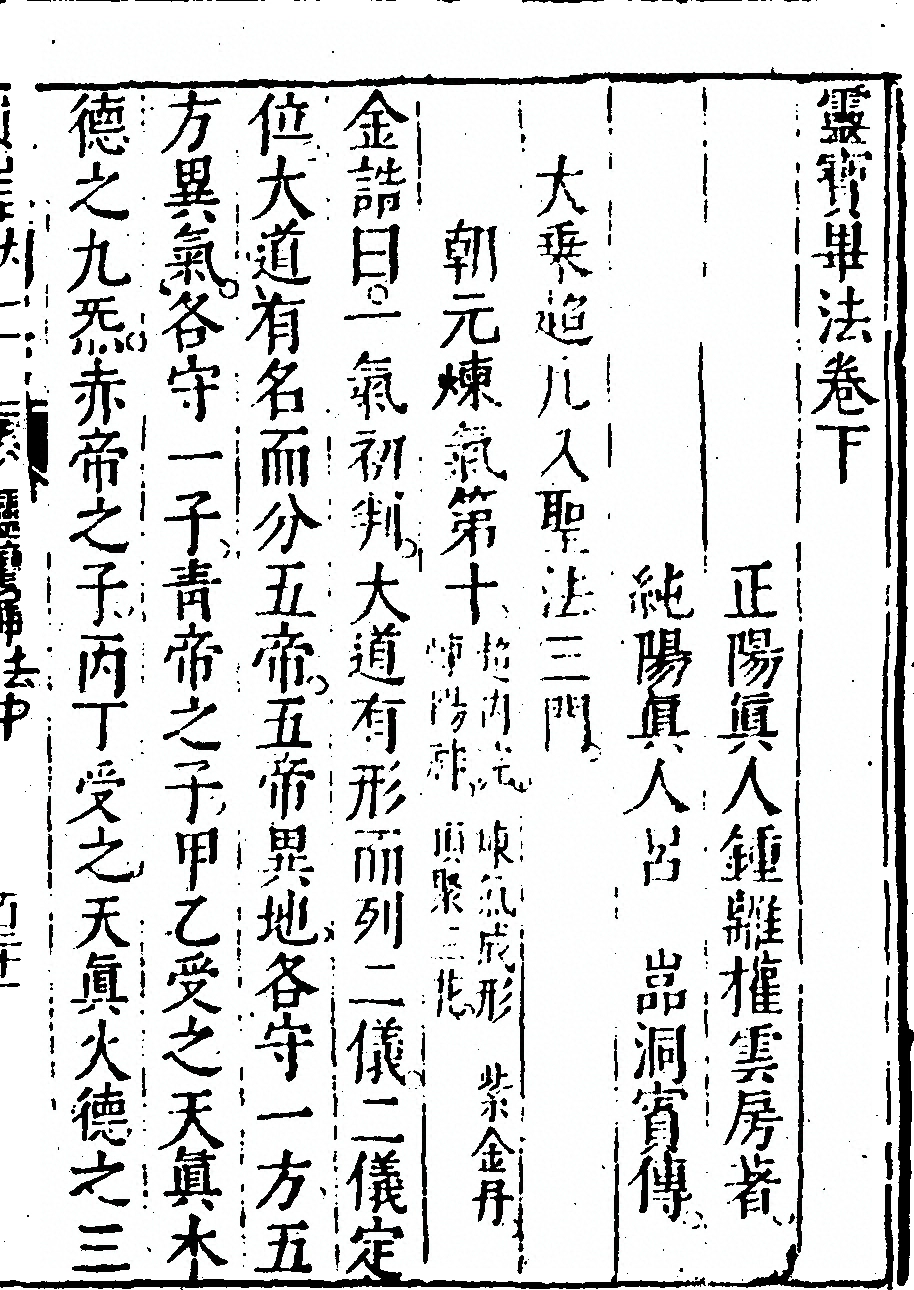 靈寶畢法卷下
正陽眞人鍾離權雲房著
純陽眞人呂嵒洞賓傳
大乘超凡入聖法三門
朝元煉氣第十 超內院 煉氣成形 紫金丹 煉陽神 頂聚三花
金誥曰。一氣初判。大道有形而列二儀。二儀定
位大道有名而分五帝。五帝異地、各守一方五
方異氣。各守一子、青帝之子、甲乙受之天眞木
德之九炁。赤帝之子、丙丁受之、天眞火德之三
靈寶畢法中